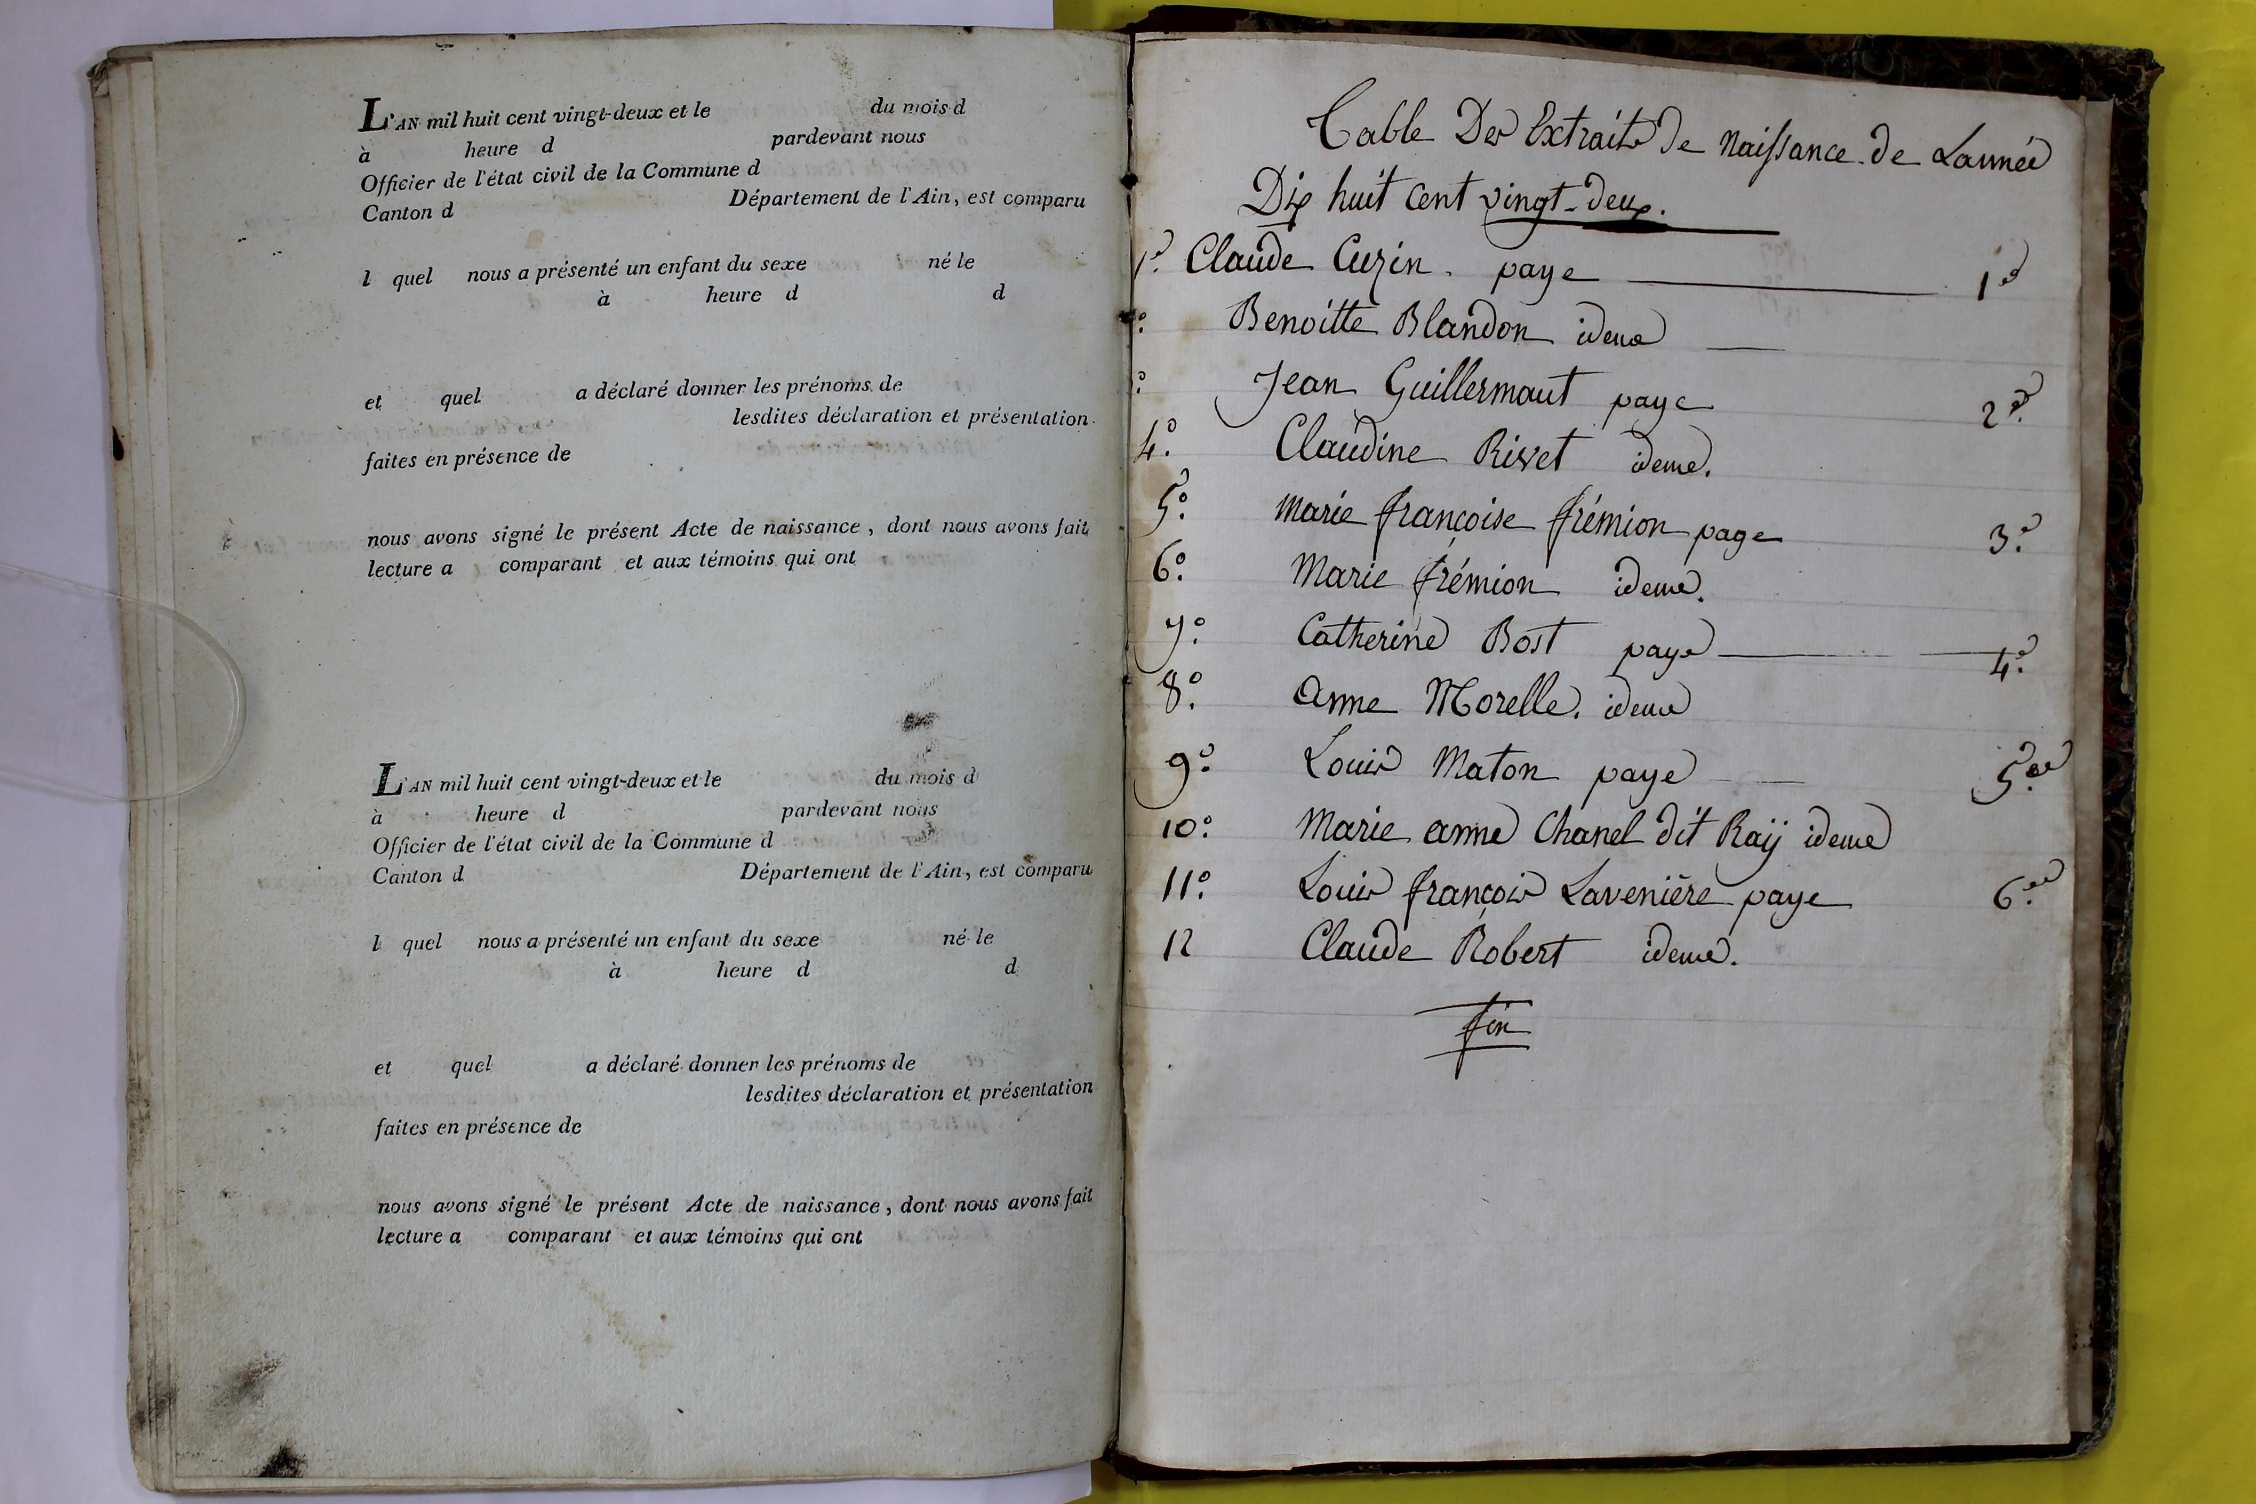 L'AN mil huit cent vingt-deux et le du mois d
à heure d pardevant nous
Officier de l'état civil de la Commune d
Canton d Département de l'Ain, est comparu
l quel nous a présenté un enfant du sexe né le
à heure d d
et quel a déclaré donner les prénoms de
lesdites déclaration et présentation
faites en présence de
nous avons signé le présent Acte de naissance, dont nous avons fait
lecture a comparant et aux témoins qui ont
L'AN mil huit cent vingt-deux et le du mois d
à heure d pardevant nous
Officier de l'état civil de la Commune d
Canton d Département de l'Ain, est comparu
l quel nous a présenté un enfant du sexe né le
à heure d d
et quel a déclaré donner les prénoms de
lesdites déclaration et présentation
faites en présence de
nous avons signé le présent Acte de naissance, dont nous avons fait
lecture a comparant et aux témoins qui ont
Table Des Extraits De Naissance de Lannée
Dix huit Cent vingt-deux.
1º. Claude Cuzin. page 1e
Benoitte Blandon ideme
Jean Guillermaut page 2e.
4º. Claudine Rivet ideme.
5º. Marie françoise frémion page 3e.
6º. Marie frémion ideme.
7º. Catherine Bost page 4e.
8º. anne Morelle. ideme
9º. Louis Maton page 5e
10º. Marie anne Chanel dit Raÿ ideme
11º. Louis françois Lavenière page 6e
12 Claude Robert ideme.
fin